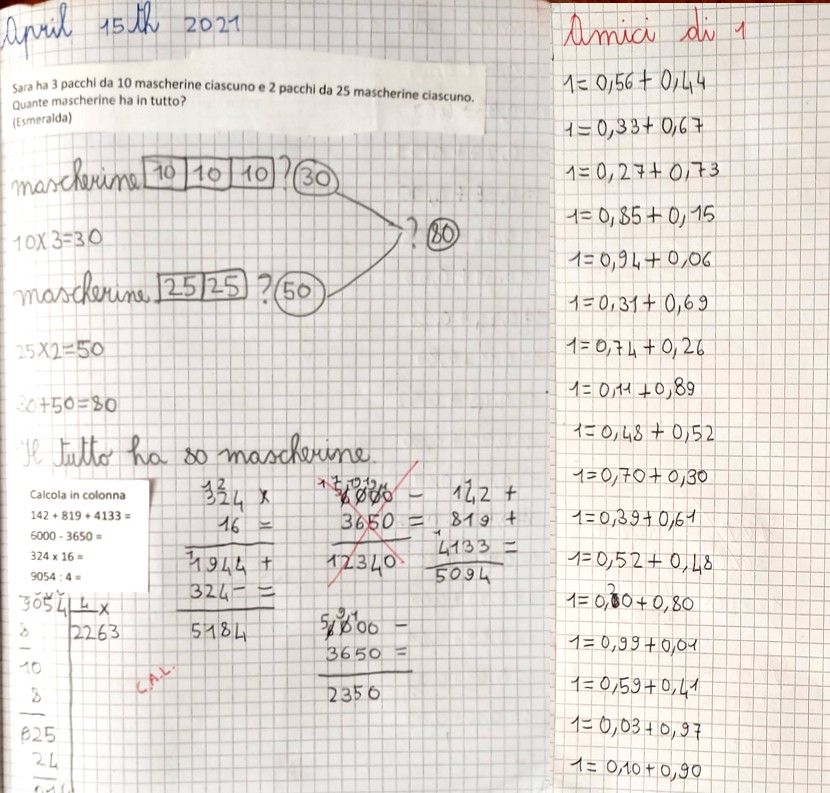 April 15th 2021
Sara ha 3 pacchi da 10 mascherine ciascuno e 2 pacchi da 25 mascherine ciascuno.
Quante mascherine ha in tutto?
(Esmeralda)
mascherine 10 10 10 ? 30
? 80
10x3=30
mascherine 25 25 ? 50
25x2=50
30+50=80
tutto ha 80 mascherine.
Calcola in colonna
142 + 819 + 4133 =
6000 - 3650 =
324 x 16 =
9054 : 4 =
324 x
16 =
1944 +
324- =
5184
3650 =
12340
142 +
819 +
4133 =
5094
9054 4
8 2263
10
8
25
24
6000 -
3650 =
2350
C.A.L.
Amici di 1
1=0,56+0,44
1=0,33+0,67
1=0,27+0,73
1=0,85+0,15
1=0,94+0,06
1=0,31+0,69
1=0,74+0,26
1=0,11+0,89
1=0,48+0,52
1=0,70+0,30
1=0,39+0,61
1=0,52+0,48
1=0,20+0,80
1=0,99+0,01
1=0,59+0,41
1=0,03+0,97
1=0,10+0,90